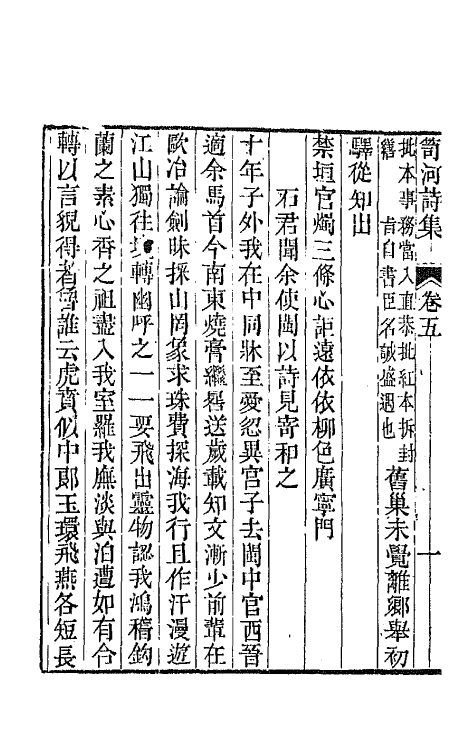 笥河詩集 卷五 一
批本事務當入直恭批紅本拆封
皆自書臣名誠盛遇也
舊巢未覺離鄉舉初
驛從知出
禁垣官燭三條心詎遠依依柳色廣寧門
石君聞余使閩以詩見寄和之
十年子外我在中同牀至愛忽異宮子去閩中官西晉
適余馬首今南東燒膏繼晷送歲載知文漸少前輩在
歐冶論劍昧採山罔象求珠費探海我行且作汗漫遊
江山獨往轉幽呼之一一要飛出靈物認我鴻稽鉤
蘭之素心香之祖盡入我室羅我廡淡與泊遭如有合
轉以言貌得者魯誰云虎賁似中郎玉環飛燕各短長